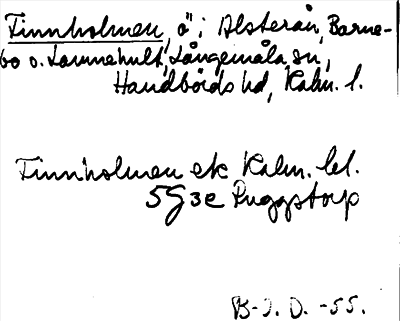 Finnholmen, ö i Alsterån, Barne-
bo o. Lannehult, Långemåla sn,
Handbörds hd, Kalm. l.
Finnholmen ek Kalm. bl.
5G3e Ruggstorp
B-I. D. -55.